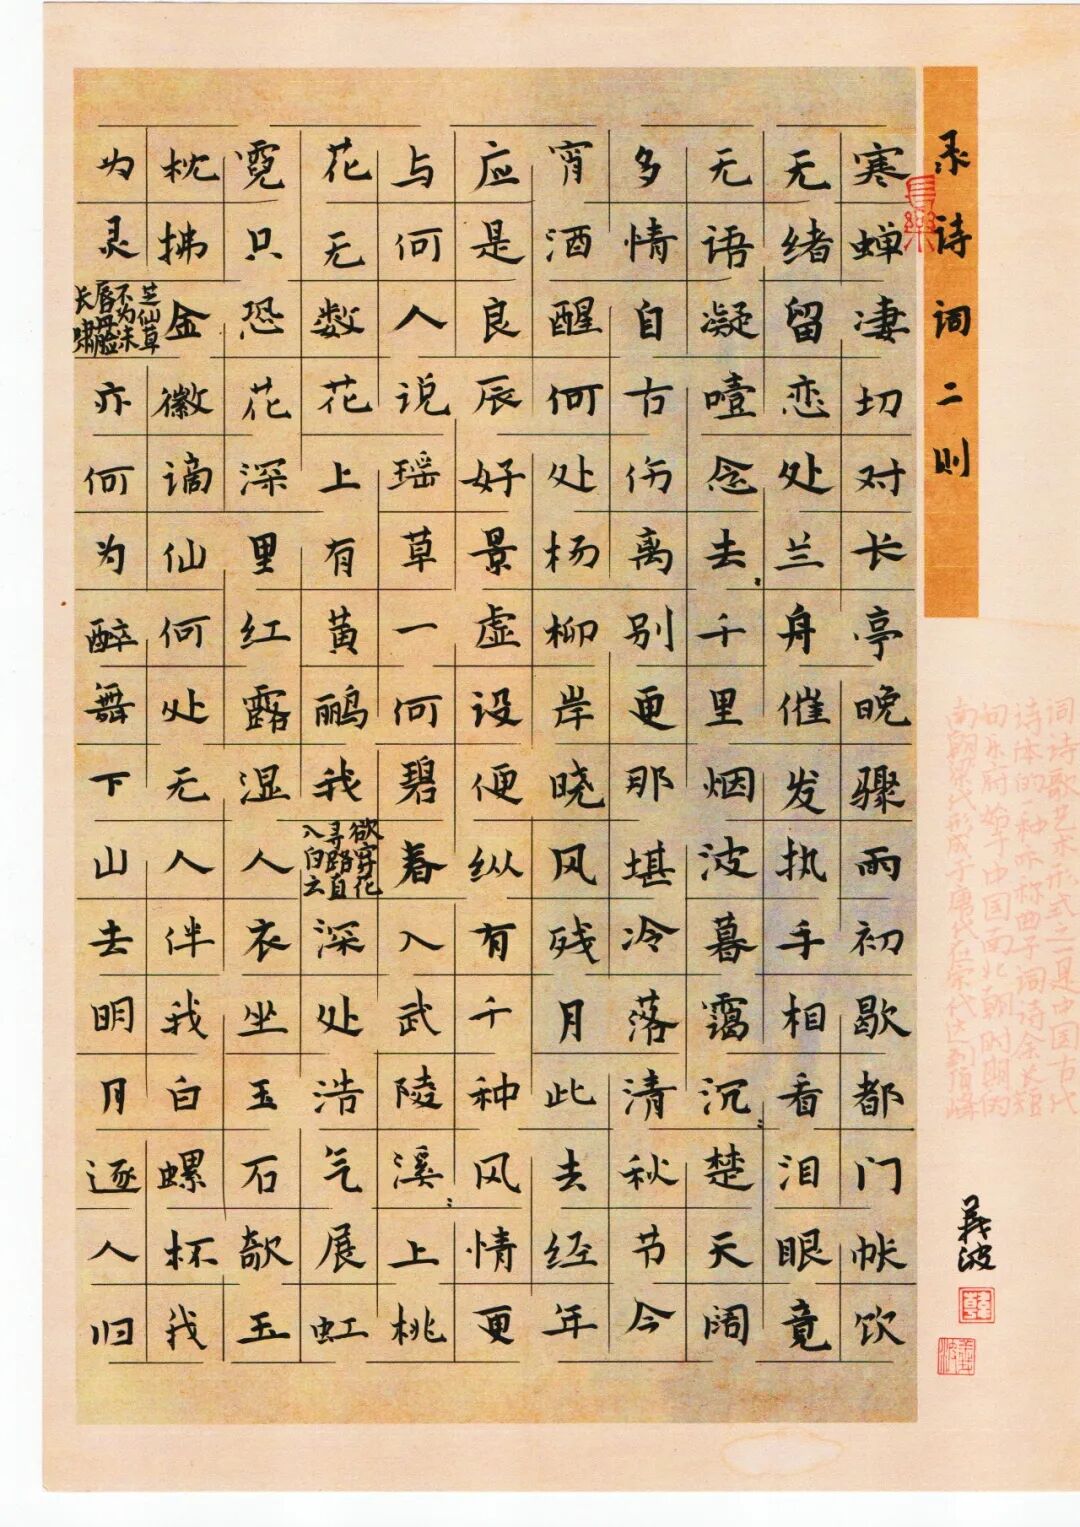 录诗词二则
長樂
寒蝉凄切对长亭晚骤雨初歇都门帐饮
无绪留恋处兰舟催发执手相看泪眼竟
无语凝噎念去〻千里烟波暮霭沉〻楚天阔
多情自古伤离别更那堪冷落清秋节今
宵酒醒何处杨柳岸晓风残月此去经年
应是良辰好景虚设便纵有千种风情更
与何人说瑶草一何碧春入武陵溪〻上桃
花无数花上有黄鹂我欲穿花寻路直入白云深处浩气展虹
霓只恐花深里红露湿人衣坐玉石欹玉
枕拂金徽谪仙何处无人伴我白螺杯我
为灵芝仙草不为朱唇丹脸长啸亦何为醉舞下山去明月逐人归
词诗歌艺术形式之一是中国古代
诗体的一种亦称曲子词诗余长短
句乐府始于中国南北朝时期的
南朝梁代形成于唐代在宋代达到顶峰
義波
義波